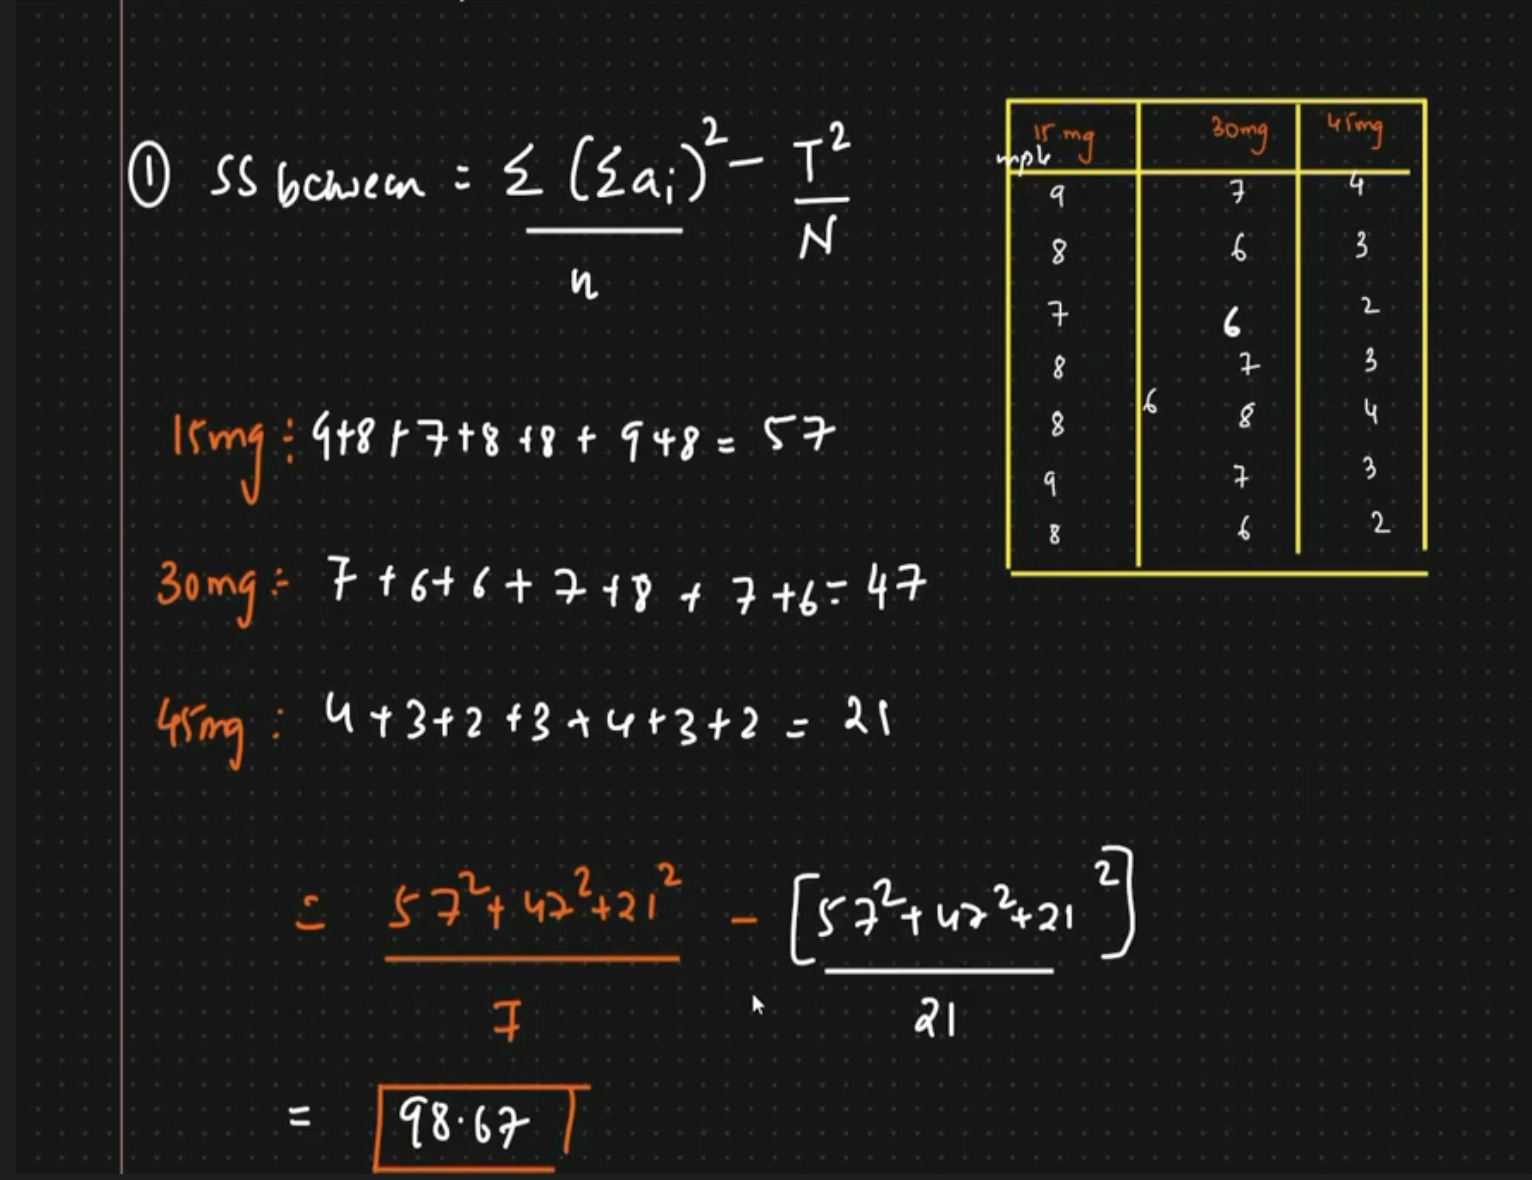 ① SS between = Σ (Σai)² - T²
n N
15mg 30mg 45mg
9 7 4
8 6 3
7 6 2
8 7 3
6
8 8 4
9 7 3
8 6 2
15mg : 9+8+7+8+8+9+8 = 57
30mg :- 7+6+6+7+8+7+6 = 47
45mg : 4+3+2+3+4+3+2 = 21
= 57²+47²+21² - [57²+47²+21²]
7 21
= 98.67